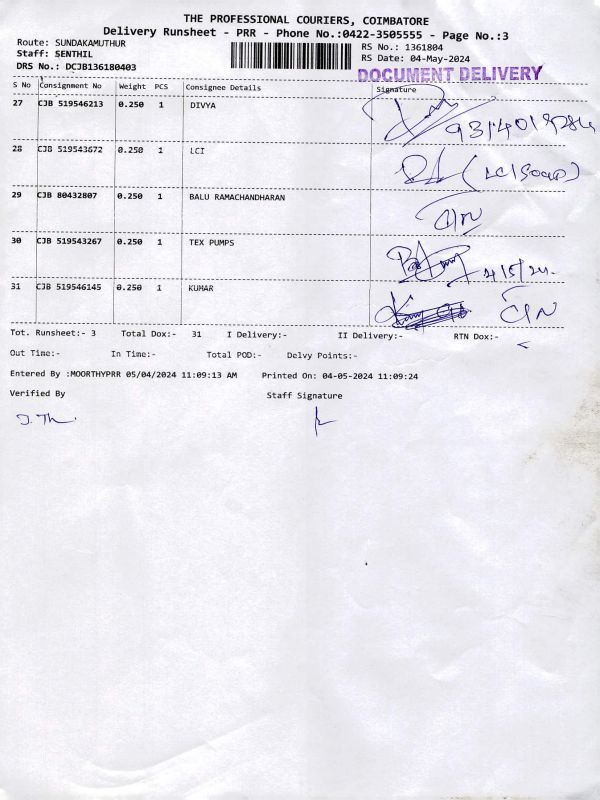 THE PROFESSIONAL COURIERS, COIMBATORE
Delivery Runsheet - PRR - Phone No.:0422-3505555 - Page No.:3
Route: SUNDAKAMUTHUR
Staff: SENTHIL
DRS No.: DCJB136180403
RS No.: 1361804
RS Date: 04-May-2024
DOCUMENT DELIVERY
S No Consignment No Weight PCS Consignee Details Signature
27 CJB 519546213 0.250 1 DIVYA
28 CJB 519543672 0.250 1 LCI
29 CJB 80432807 0.250 1 BALU RAMACHANDHARAN
30 CJB 519543267 0.250 1 TEX PUMPS
31 CJB 519546145 0.250 1 KUMAR
Tot. Runsheet:- 3 Total Dox:- 31 I Delivery:- II Delivery:- RTN Dox:-
Out Time:- In Time:- Total POD:- Delvy Points:-
Entered By :MOORTHYPRR 05/04/2024 11:09:13 AM Printed On: 04-05-2024 11:09:24
Verified By Staff Signature